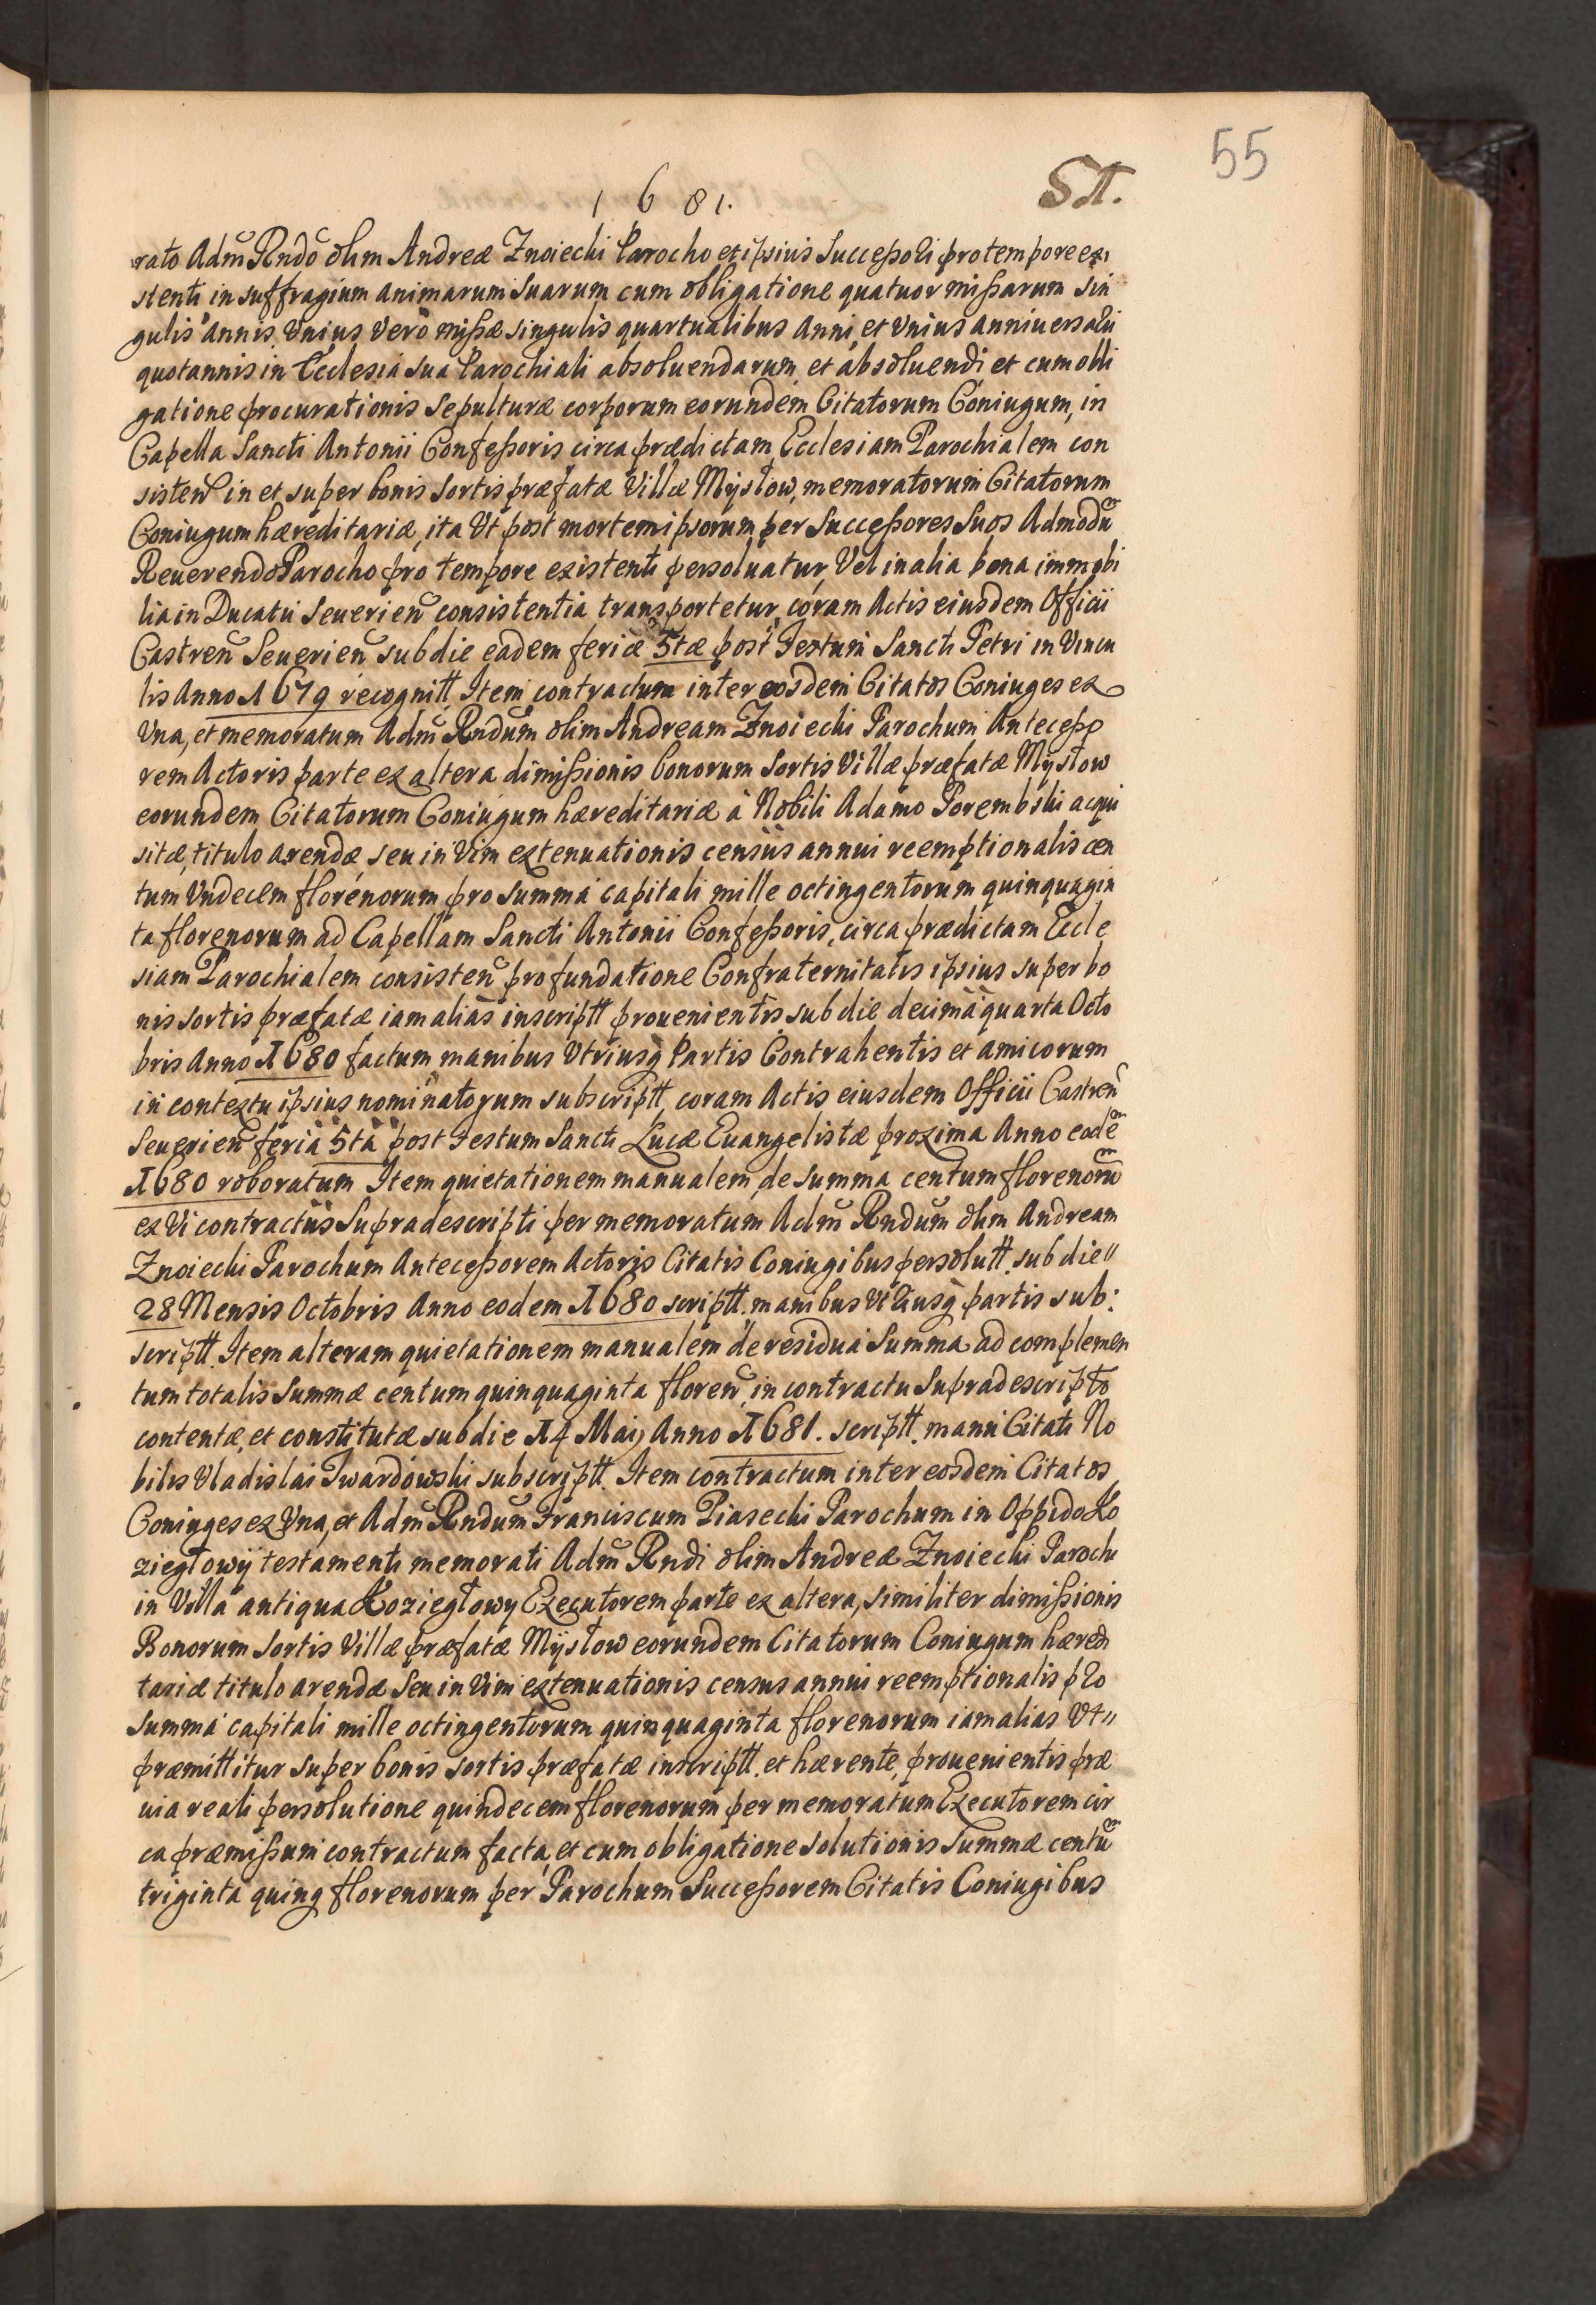 55
1681.
rato Adm̃ Rndo olim Andreæ Znoiecki Parocho et ipsius Successori pro tempore exi
stenti in suffragium animarum suarum cum obligatione quatuor missarum sin
gulis annis, Vnius vero missæ singulis quartualibus Anni, et Vnius anniuersarii
quotannis in Ecclesia sua Parochiali absoluendarum, et absoluendi et cum obli
gatione procurationis sepulturæ corporum eorundem Citatorum Coniugum, in
Capella Sancti Antonii Confessoris circa prædictam Ecclesiam Parochialem con
sisten̄ in et super bonis sortis præfatæ Villæ Mysłow, memoratorum Citatorum
Coniugum hæreditariæ, ita Vt post mortem ipsorum per Successores Suos Admodū
Reuerendo Parocho pro tempore existenti persoluatur, Vel in alia bona immobi
lia in Ducatu Seuerien̄ consistentia transportetur, coram Actis eiusdem Officii
Castren̄ Seuerien̄ sub die eadem feriæ 5tæ post Festum Sancti Petri in Vincu
lis Anno 1679 recognitt, Item contractum inter eosdem Citatos Coniuges ex
Vna, et memoratum Adm̄ Rndum olim Andream Znoiecki Parochum Antecesso
rem Actoris parte ex altera dimissionis bonorum sortis Villæ præfatæ Mysłow
eorundem Citatorum Coniugum hæreditariæ à Nobili Adamo Porembski acqui
sitæ, titulo arendæ seu in Vim extenuationis censûs annui reemptionalis cen
tum Vndecem florenorum pro summa capitali mille octingentorum quinquagin
ta florenorum ad Capellam Sancti Antonii Confessoris, circa prædictam Eccle
siam Parochialem consisten̄ pro fundatione Confraternitatis ipsius super bo
nis sortis præfatæ iam aliàs inscriptt prouenientis sub die decima quarta Octo
bris Anno 1680 factum manibus Vtriusq̨ Partis Contrahentis et amicorum
in contextu ipsius nominatorum subscriptt, coram Actis eiusdem Officii Castren̄
Seuerien̄ feria 5tâ post Festum Sancti Lucæ Euangelistæ proxima Anno eodē
1680 roboratum Item quietationem manualem, de summa centum florenorū
ex Vi contractûs Supradescripti per memoratum Adm̄ Rndum olim Andream
Znoiecki Parochum Antecessorem Actoris Citatis Coniugibus persolutt. sub die
28 Mensis Octobris Anno eodem 1680 scriptt. manibus Vtriusq̨ partis sub:
scriptt. Item alteram quietationem manualem de residua Summa ad complemen
tum totalis Summæ centum quinquaginta floren̄, in contractu Supradescripto
contentæ, et constitutæ sub die 14 Maij Anno 1681. scriptt. manu Citati No
bilis Vladislai Twardowski subscriptt. Item contractum inter eosdem Citatos
Coniuges ex Vna, et Adm̄ Rndum Franciscum Piasecki Parochum in Oppido Ko
ziegłowy testamenti memorati Adm̄ Rndi olim Andreæ Znoiecki Parochi
in Villa antiqua Koziegłowy Executorem parte ex altera, similiter dimissionis
Bonorum sortis Villæ præfatæ Mysłow eorundem Citatorum Coniugum hæredi
tariæ titulo arendæ Seu in Vim extenuationis census annui reemptionalis pro
summa capitali mille octingentorum quinquaginta florenorum iam alias Vt
præmittitur super bonis sortis præfatæ inscriptt. et hærente, prouenientis præ
uia reali persolutione quindecem florenorum per memoratum Executorem cir
ca præmissum contractum facta, et cum obligatione solutionis Summæ centū
triginta quinq̨ florenorum per Parochum Successorem Citatis Coniugibus